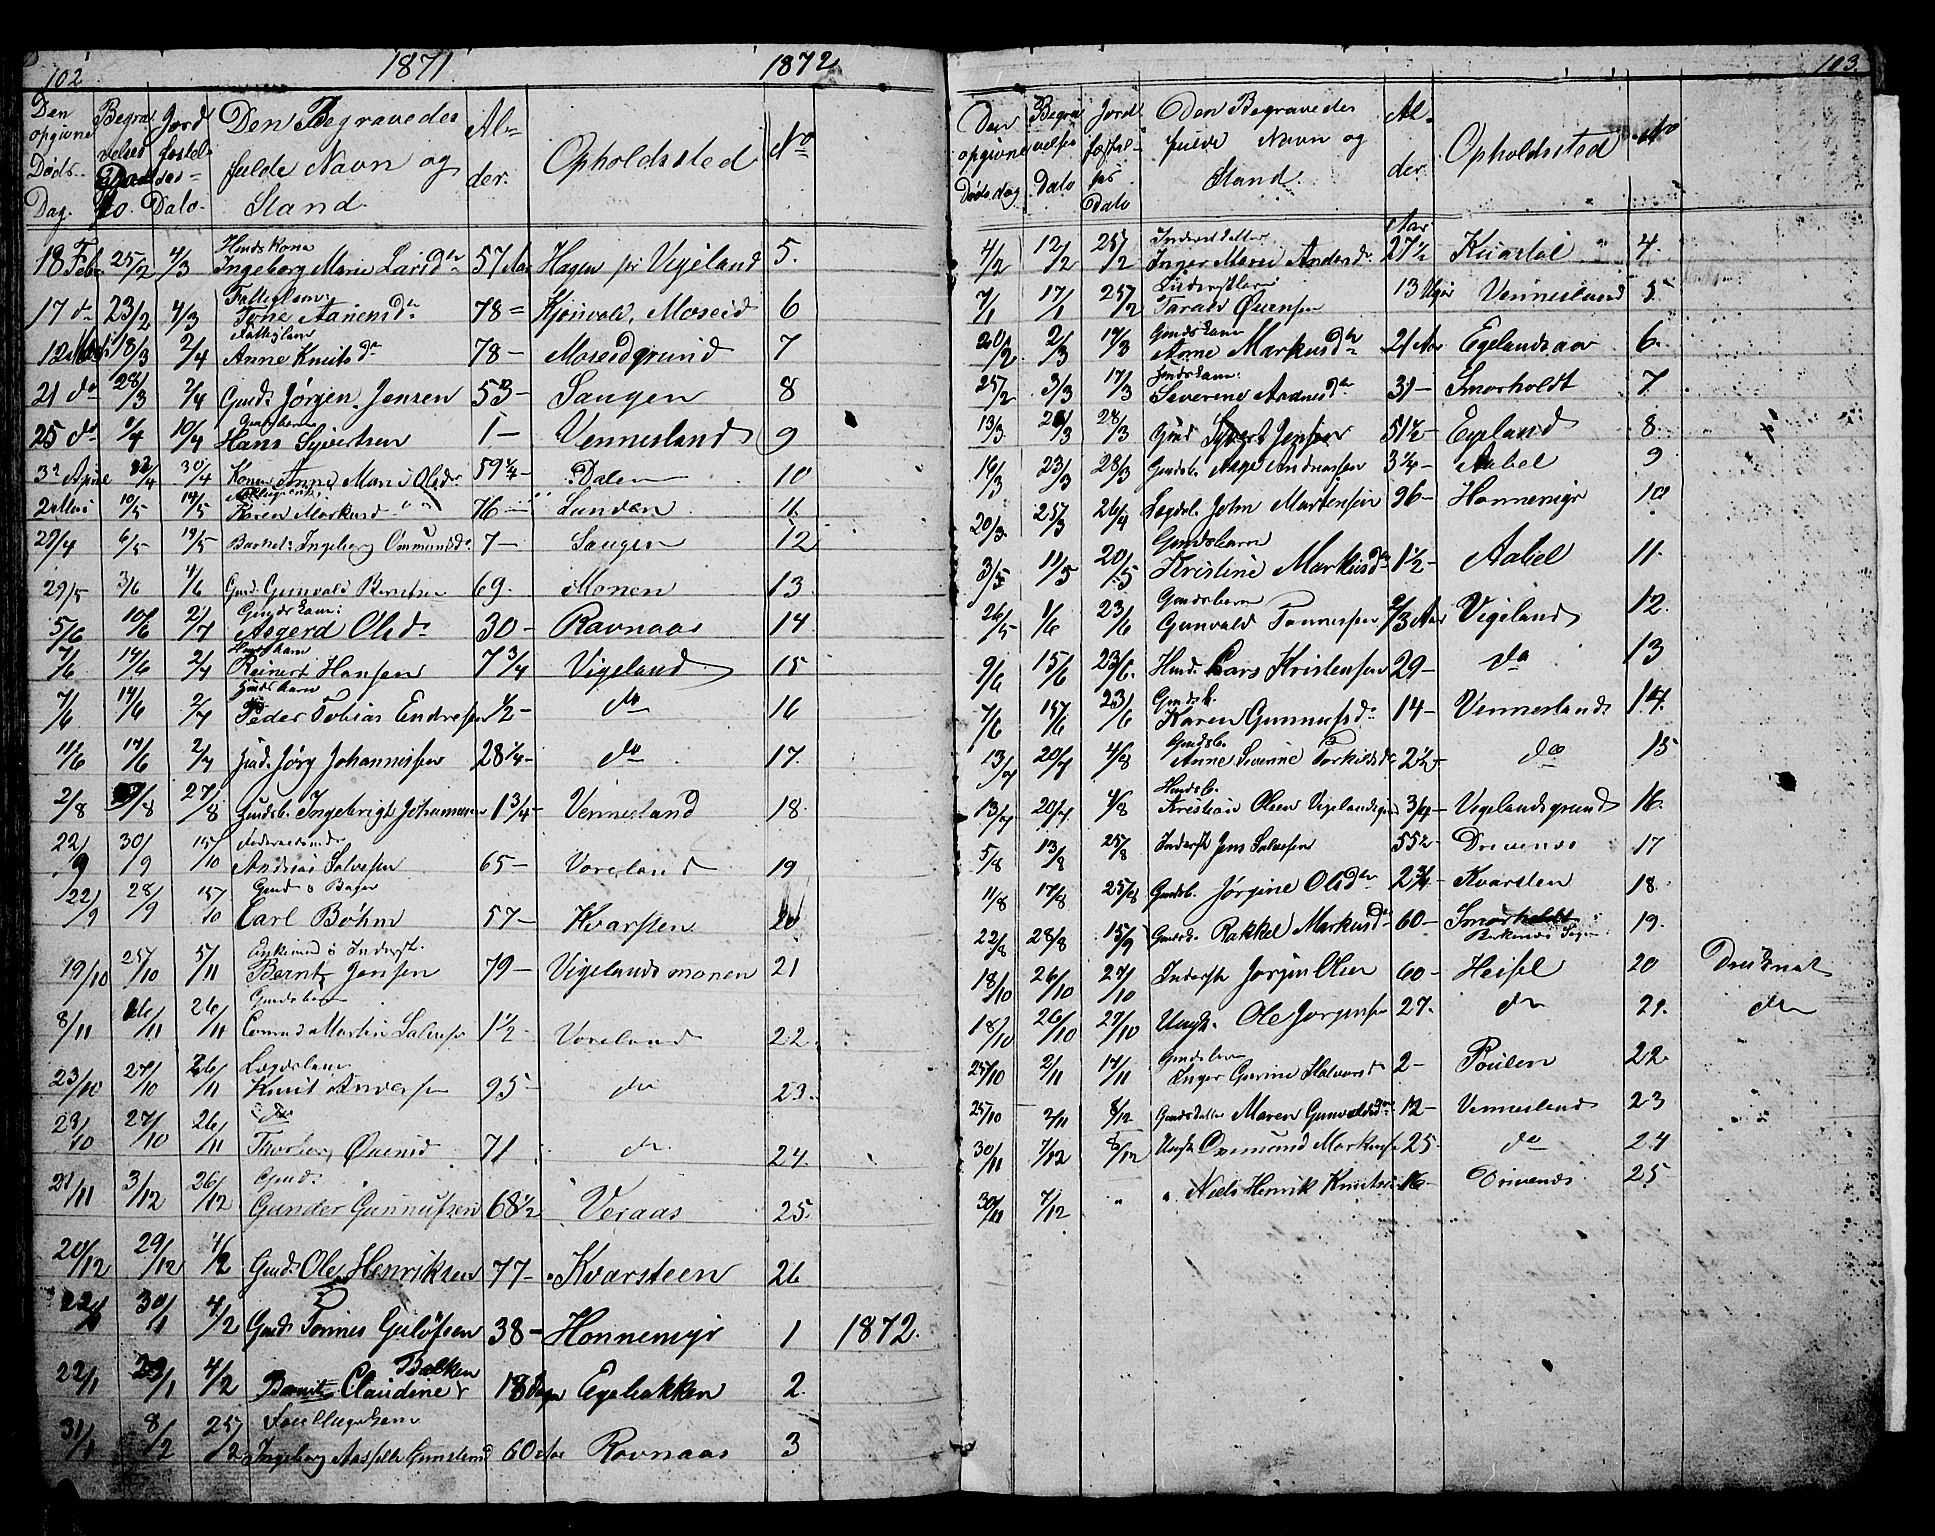 102 1871 1872
Den opgivne Døds Dag. Begravelses Dato. Jordfæstelses Dato. Den Begravedes fulde Navn og Stand. Alder. Opholdssted No
Huuds Kone
18 Feb 25/2 4/3 Ingeborg Marie Larsdr 57 Aar Hagen pr Vigeland 5.
Fattiglem:
17 do 23/2 4/3 Tone Aanensdr 78 Hjonvold, Moseid 6
Fattiglem
12 18/3 2/4 Anne Knutsdr 78 - Moseidgrund 7
21 do 28/3 2/4 Gmd. Jørgen Jensen 53 - Saugen 8
Gmdsbarn
25 do 1/4 10/4 Hans Syvertsen 1 - Vennesland 9
3 April 22/4 30/4 Konen Anne Marie Olsdr 59 1/4 - Dalen 10
2 Mai 10/5 14/5 Karen Markusd " " 76 - Lunden 11
29/4 6/5 14/5 Barnet: Ingeborg Ommundsdr 7 - Saugen 12
29/5 3/6 4/6 Gmd. Gunvald Berntsen 69. Monen 13.
Gmdskone:
5/6 10/6 2/7 Asgerd Olsdr 30 - Ravnaas 14
7/6 14/6 2/7 Reinert Hansen 7 3/4 Vigeland 15
7/6 14/6 2/7 Peder Tobias Endresen 1/2 - do 16
11/6 17/6 2/7 Jørg Johannessen 28 1/4 - do 17.
2/8 /8 27/8 Ingebrigt Johannesen 1 3/4 - Vennesland 18.
22/9 30/9 15/10 Andreas Salvesen 65 - Voreland 19
Gmd & Bager
22/9 28/9 15/10 Carl Bøhm 57 - Kvarsten 20
Enkemand & Inderst.
19/10 25/10 5/11 Bernt Jensen 79 - Vigelandsmonen 21
Gmdsbarn
8/11 16/11 26/11 Conrad Martin Salvesen 1 1/2 Voreland 22.
Lægdslem
23/10 27/10 26/11 Knut Andersen 95 - do 23.
do
23/10 27/10 26/11 Thorborg Øvensd 71 do 24.
Gmd.
21/11 3/12 26/12 Gunder Gunnufsen 68 1/2 Veraas 25.
20/12 29/12 4/2 Gmd. Ole Henriksen 77 - Kvarsteen 26
22/1 30/1 4/2 Gmd. Tønnes Gulofsen 38 - Honnemyr 1 1872.
Balken
22/1 29/1 4/2 Claudine 18 Dage Egebakken 2.
31/1 8/2 25/2 Ingeborg Gunstensd 60 Aar Ravnaas 3
103.
Den opgivne Dødsdag Begravelses Dato Jordfæstelses Dato Den Begravedes fulde Navn og Stand. Alder. Opholdssted No
Inderst Datter Aar
4/2 12/2 25/2 Inger Marie Andersdr. 27 1/2 Kvarstøl 4.
7/1 17/1 25/2 Tarald Øvensen 13 Uger Vennesland 5
Gmdskone
20/2 2/3 17/3 Anne Markusdr 21 Aar Egelandsaas 6.
25/2 3/3 17/3 Severine Aadnesdr 31 - Smorholdt 7
13/3 21/3 28/3 Gmd Syvert Jensen 51 1/2 - Egeland 8.
16/3 23/3 28/3 Gmdsb. Aage Andreassen 3 1/4 - Aabel 9
20/3 25/3 26/4 Lægdsl. John Martensen 96 - Honnemyr 10
Gmdsbarn
3/5 11/5 20/5 Kristine Markusdr 1 1/2 - Aabel 11.
Gmdsbarn
26/5 1/6 23/6 Gunvald Tønnesen 2/3 Aar Vigeland 12.
9/6 15/6 23/6. Huusd. Lars Kristensen 29 - do 13
Gmdsb.
7/6 15/6 23/6 Karen Gunnufsdr 14 - Vennesland 14.
Gmdsb.
13/7 20/7 4/8 Anne Sivrine Torkildsdr 2 1/2 - do 15
Huusdsb.
13/7 20/7 4/8 Kristian Olsen Vigelandsgrund 3/4 - Vigelandsgrund 16.
5/8 13/8 25/8 Inderst Jens Salvesen 55 1/2 - Drivenes 17
11/8 17/8 25/8 Gmdsb. Jørgine Olsdr 2 3/4 - Kvarsten 18.
22/8 28/8 15/9 Rakkel Markusdr 60 - Smorholdt 19.
18/10 26/10 27/10 Inderste Jørgen Olsen 60 - Heisel 20 Druknet
18/10 26/10 27/10 Ungk. Ole Jørgensen 27. do 21. do
25/10 2/11 17/11 Inger Gurine Halvorsd 2 - Poulen 22.
25/10 2/11 8/12 Gmdsdatter Maren Gunvaldsdr 12 - Vennesland 23
30/11 7/12 8/12 Ungk Ommund Markusen 25. do 24
30/11 7/12 " " Niels Henrik Knutsen 16 - Drivenes 25